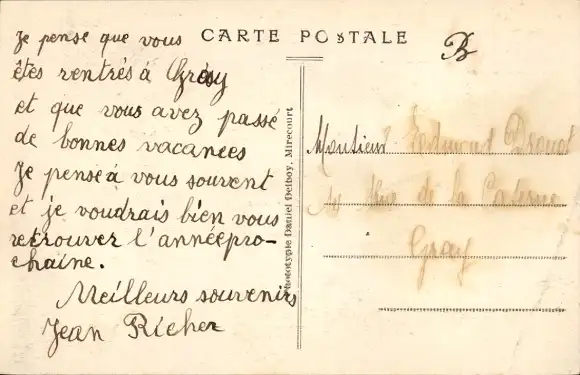 CARTE POSTALE
B
Je pense que vous
êtes rentrés à Gray
et que vous avez passé
de bonnes vacanees
Je pense à vous souvent
et je voudrais bien vous
retrouver l'annéepro-
chaine.
Meilleurs souvenirs
Jean Richer
Phototypie Daniel Delboy, Mirecourt
Monsieur Edmond
Rue de la Caserne
Gray